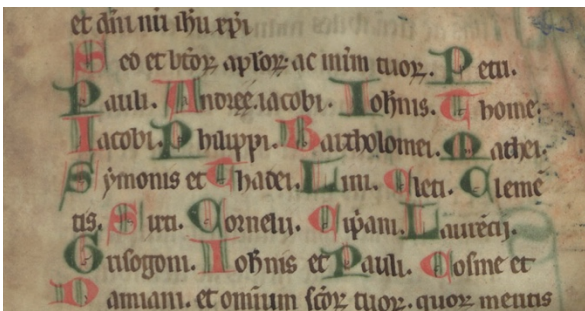 et dn̄i nr̄i ihu xpi
Sed et btōꝝ aplōꝝ: ac mr̄m tuoꝝ. Petri.
Pauli. Andreę. iacobi. Iohn̄is. Thome.
Iacobi. Philippi. Bartholomei. Mathei.
Sẏmonis et Thadei. Lini. Cleti. Clemē
tis. Sixti. Cornelii. Cip̄ani. Laurēcij.
Grisogoni. Iohn̄is et Pauli. Cosme et
Damiani. et omīum sc̄oꝝ tuoꝝ. quoꝝ meritis